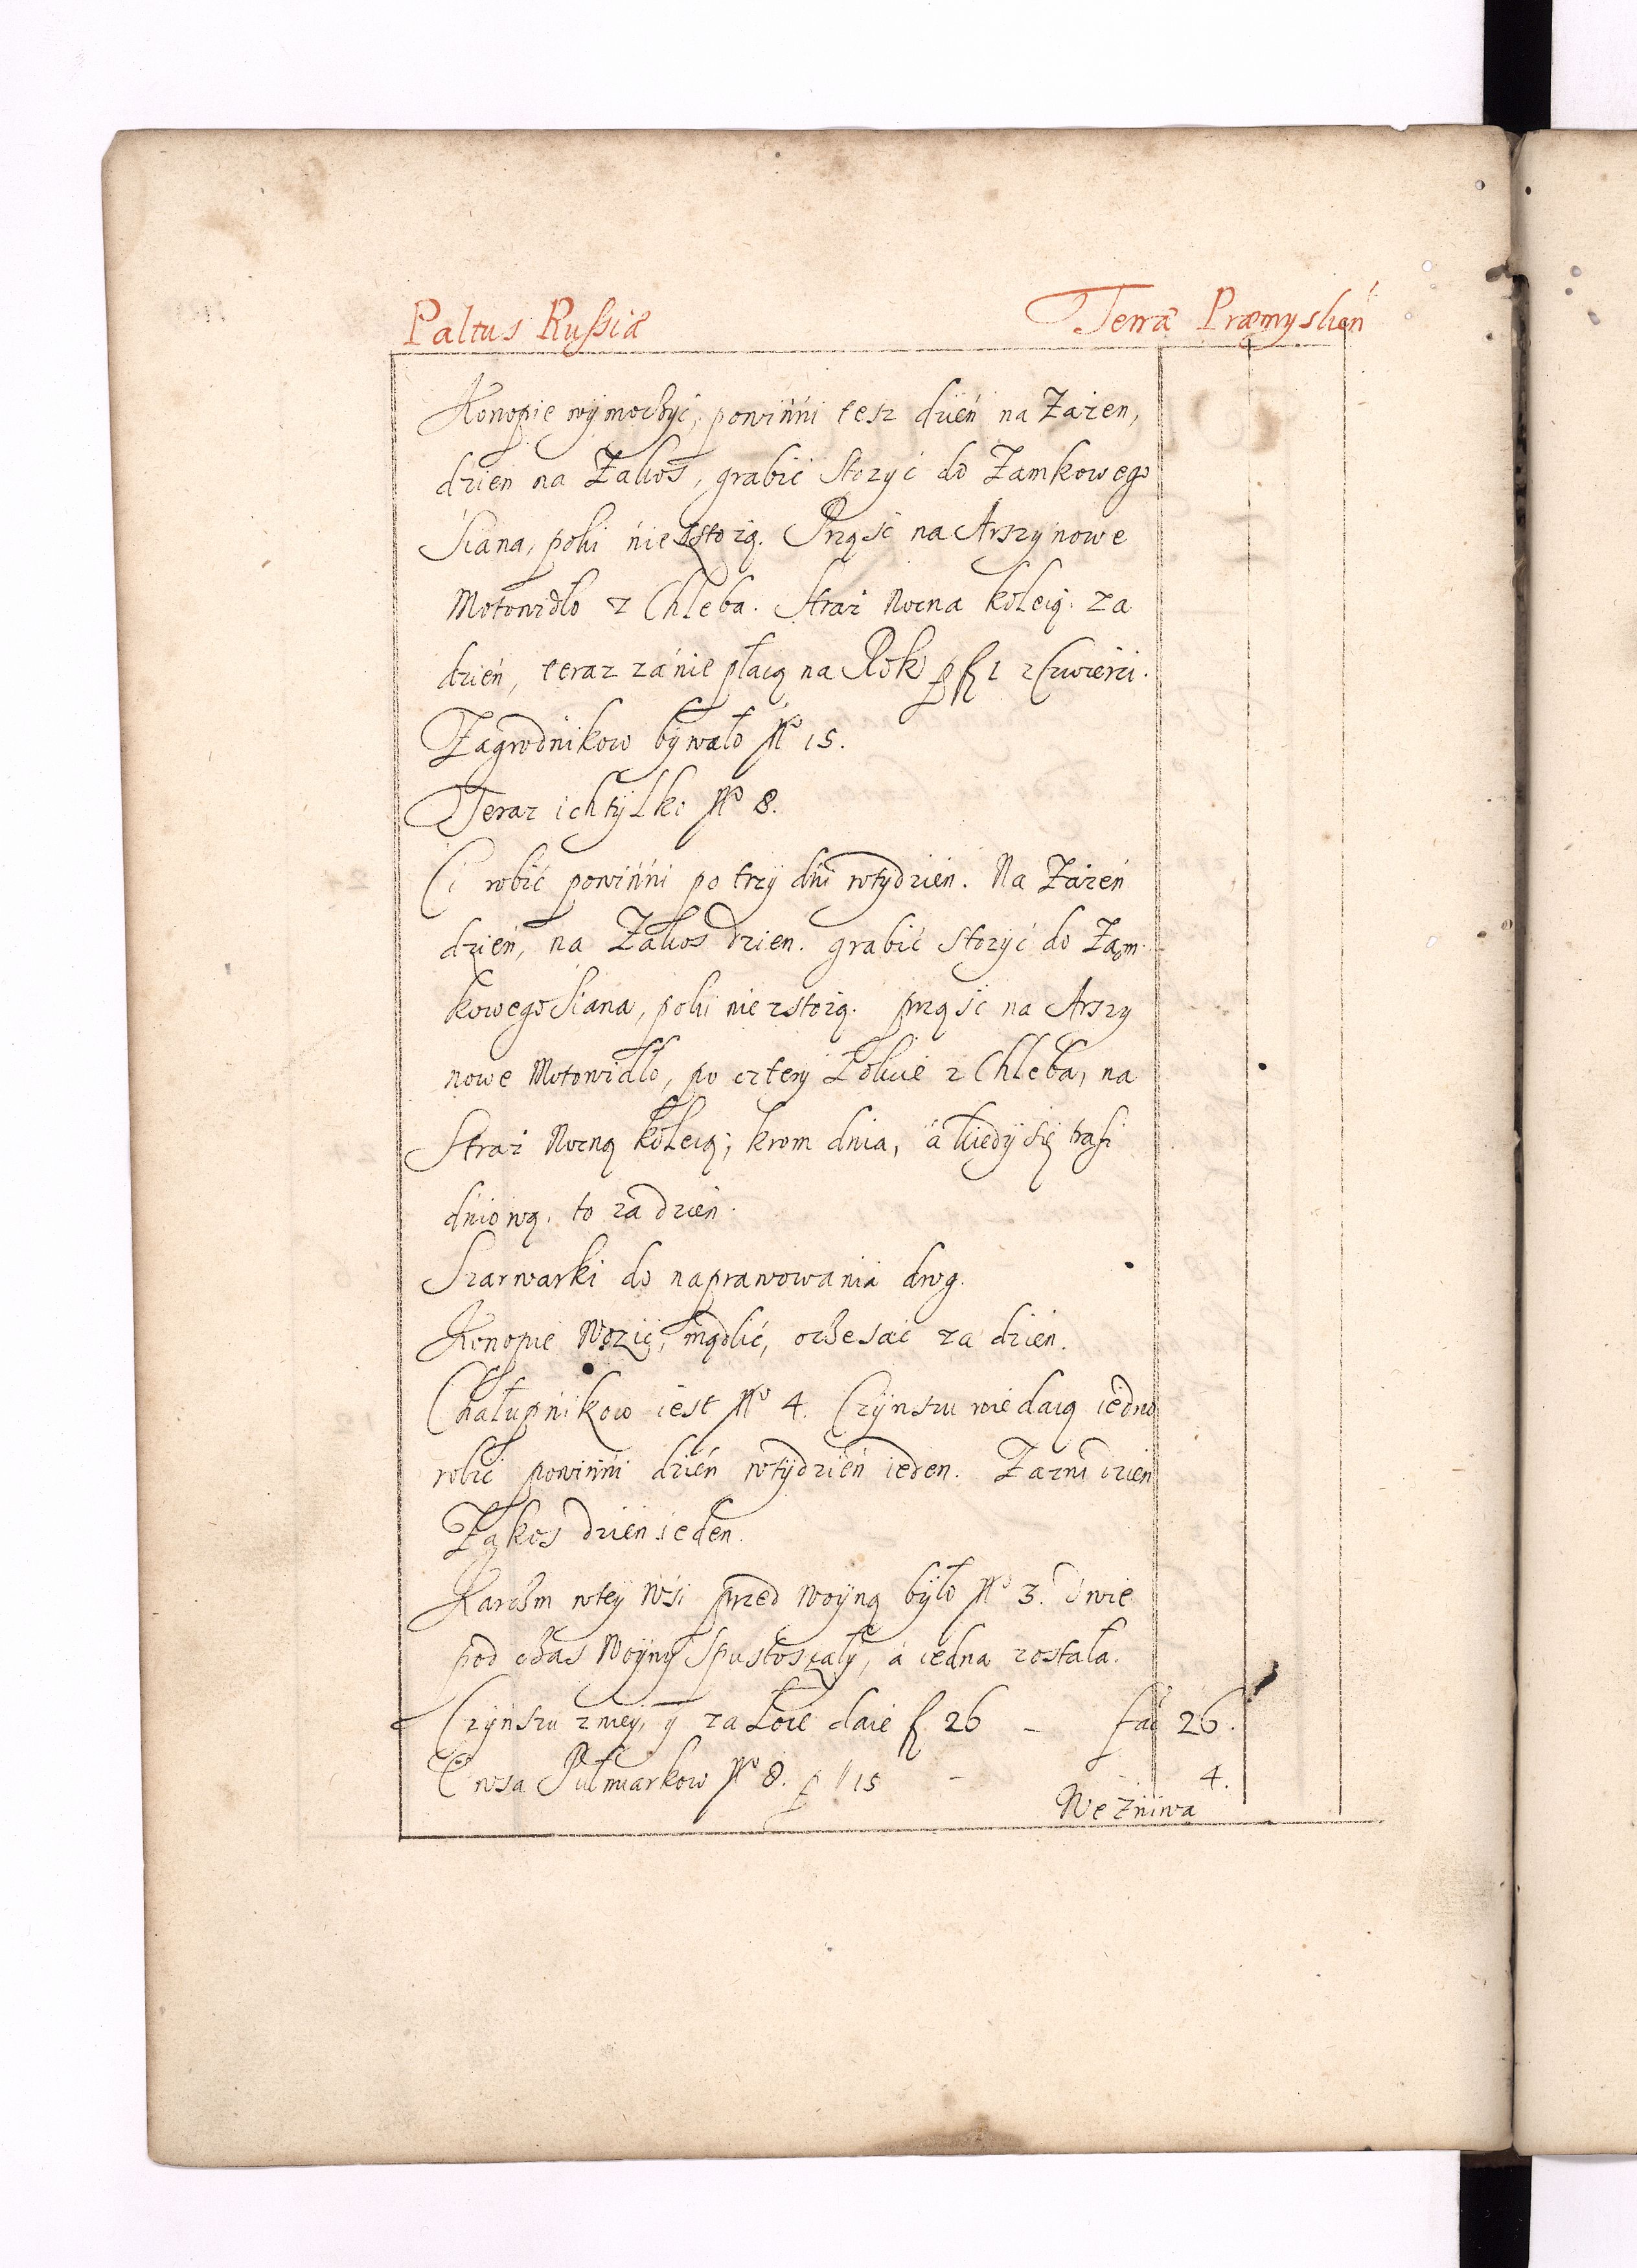 Paltus Russiæ Terræ Præmyslien
Konopie wymoczyć, powinni tesz dzień na Zażen,
dzien na Zakos, grabić stożyć do Zamkowego
Siana, poki nie zstożą. Prząść na Arszynowe
Motowidło z Chleba. Straż Nocna koleią. za
dzień, teraz zánie płacą na Rok p fl 1 z Czwierci.
Zagrodnikow bywało No 15.
Teraz ich tylki No 8.
Ci robić powinni po trzy dni wtydzien. Na Zażeń
dzień, na Zakos dzien. grabić stożyć do Zam
kowego Siana, poki nie zstożą. prząść na Arszy
nowe Motowidło, po cztery Łokcie z Chleba, na
Straż Nocną koleią; krom dnia, á kiedy się trafi
dniową. to za dzień.
Szarwarki do naprawowania drog.
Konopie Wozić, mądlić, oczesać za dzień.
Chałupnikow iest No 4. Czynszu nie daią iedno
robić powinni dzień wtydzień ieden. Zażni dzien
Zakos dzien ieden.
Karczm wtey Wsi przed Woyną było No 3. dwie
pod czas Woyny Spustoszały, á iedna została.
Czynszu z niey, y za Łoie daie fl 26 – fac 26.
Owsa Pułmiarkow No 8. p 15 – 4.
We Żniwa